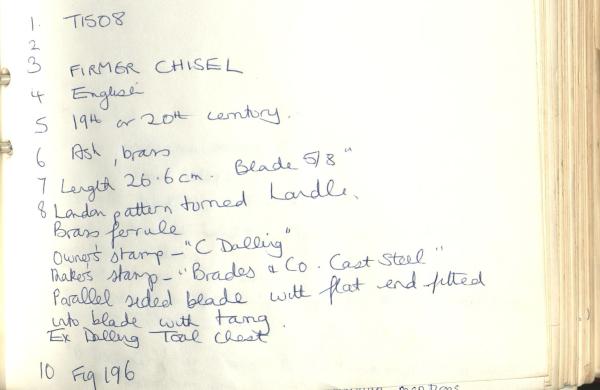 1. T1508
2
3 FIRMER CHISEL
4 English
5 19th or 20th century.
6 Ash, brass
7 Length 26.6cm. Blade 5/8"
8 London pattern turned handle.
Brass ferrule
Owner's stamp - "C Dalling"
Maker's stamp - "Brades & Co. Cast Steel"
Parallel sided blade with flat end fitted
into blade with tang.
Ex Dalling Tool Chest
10 Fig 196